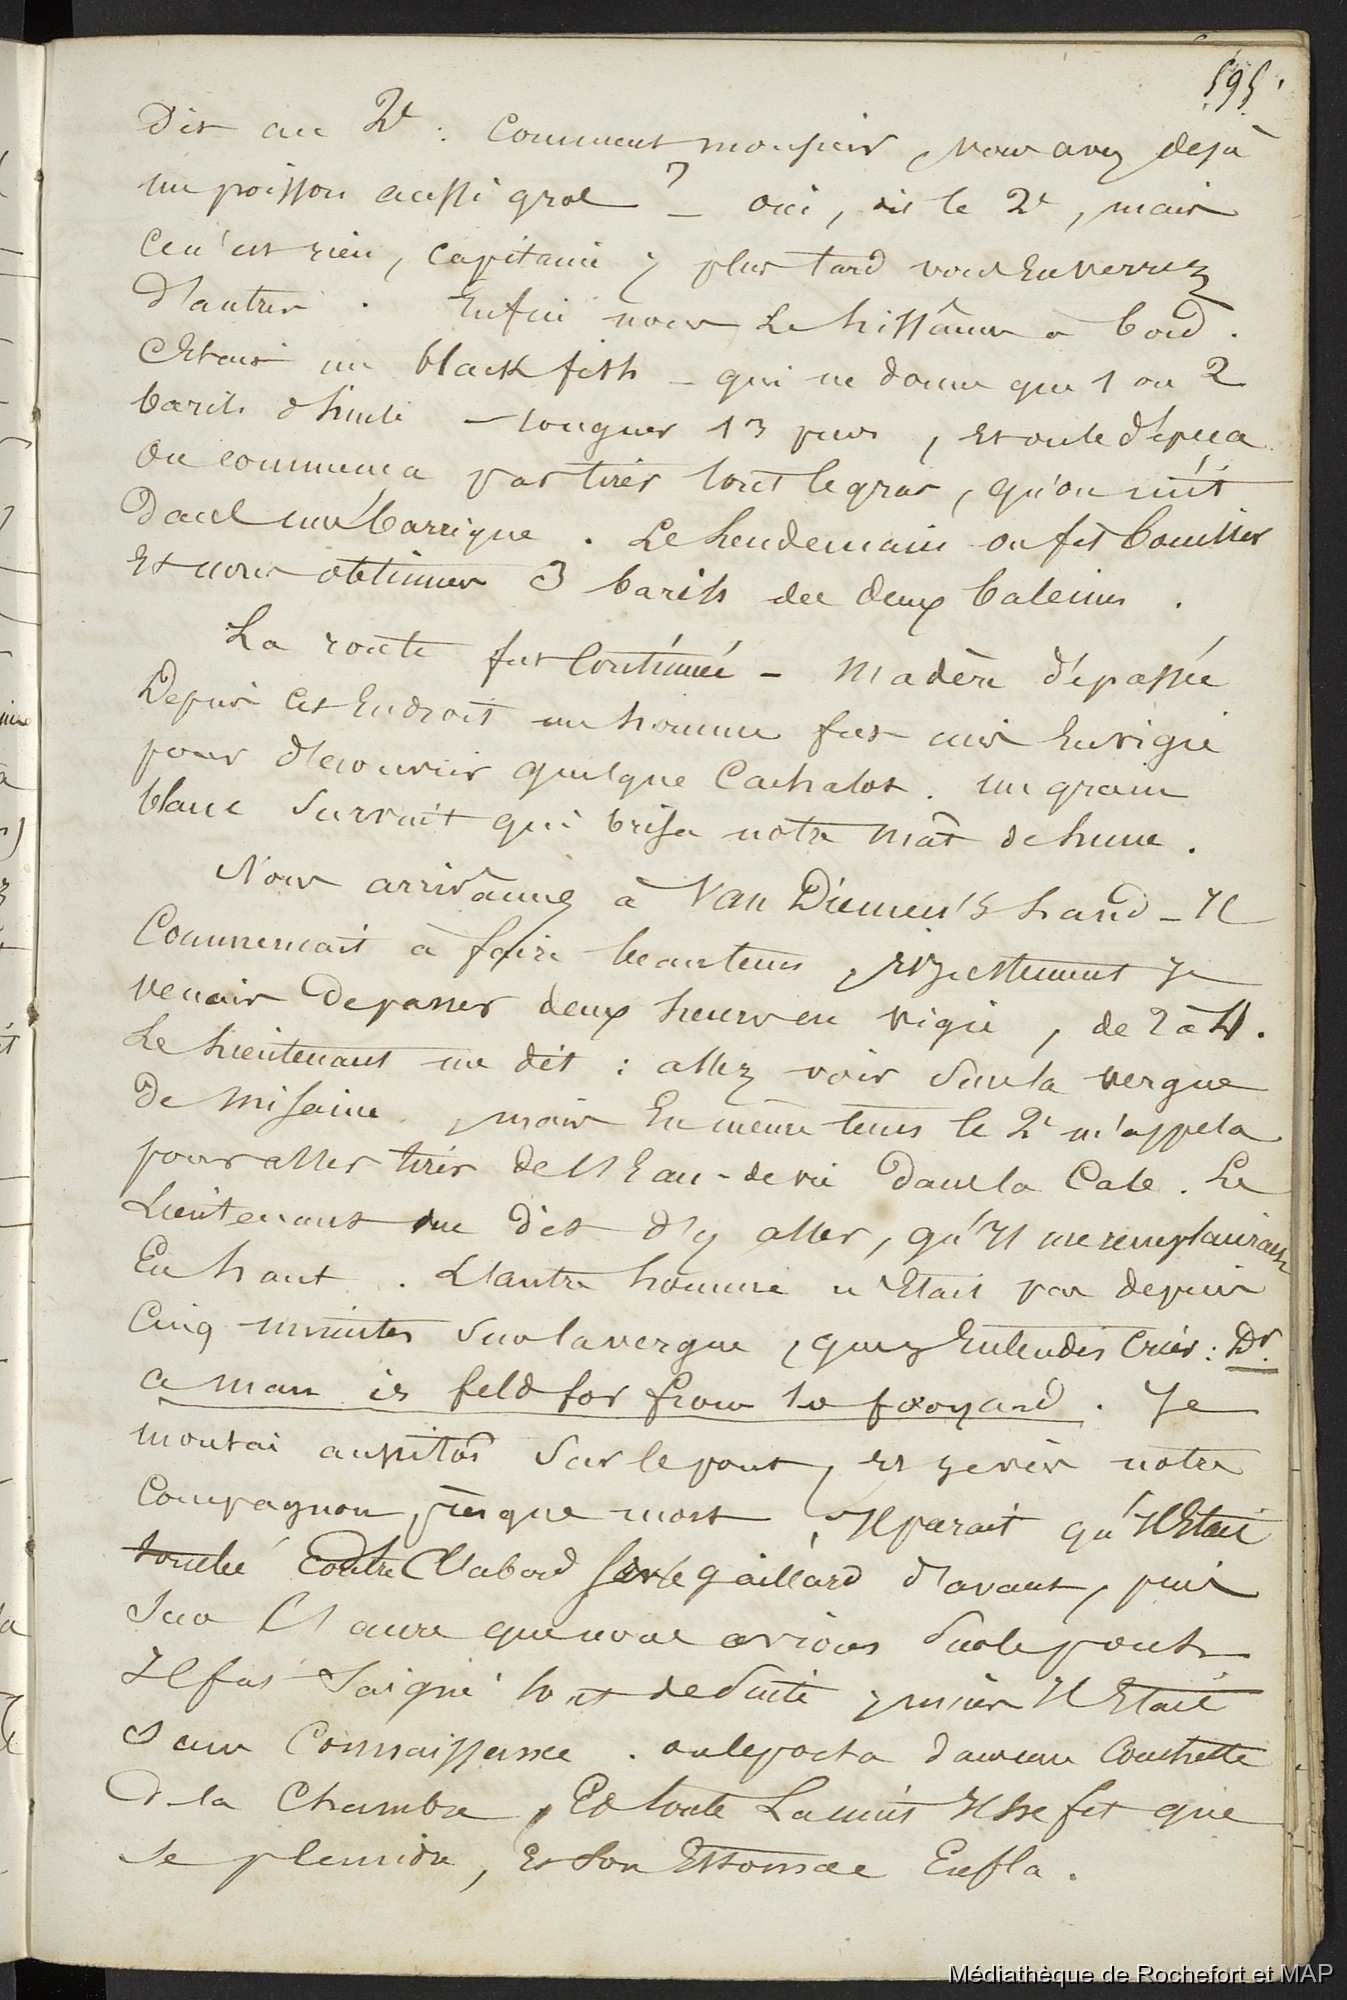 595.
Dit au 2d : Comment monsieur, vous avez dejà
un poisson aussi gros ? _ Oui, dit le 2d, mais
ce n'est rien, Capitaine, plus tard vous en verrez
d'autres. Enfin nous le hissâmes à bord.
C'Etait un black fish _ qui ne donne que 1 ou 2
barils d'huile _ longueur 13 pieds, et on le dépeça
On commença par tirer tout le gras, qu'on mit
dans une barrique. Le lendemain on fit bouillir
Et nous obtinmes 3 barils des deux baleines.
La route fut Continuée _ Madère dépassée
Depuis cet Endroit un homme fut mis En vigie
pour découvrir quelque Cachalot. un grain
blanc survint qui brisa notre mât de hune.
Nous arrivâmes à Van Diemen's Land _ Il
Commençait à faire beau tems, et justement Je
venais de passer deux heures en vigie, de 2 à 4.
Le lieutenant me dit : allez voir sur la vergue
De Misaine, mais En même tems le 2d m'appela
pour aller tirer de l'Eau-de-vie dans la Cale. Le
Lieutenant me dit d'y aller, qu'Il me remplacerait
En haut. L'autre homme n'Etait pas depuis
Cinq minutes sur la vergue, que j'Entendis Crier : Dr.
a man is feld for from to fooyard. Je
montai aussitôt sur le pont, et je vis notre
Compagnon presque mort, Il parait qu'Il Etait
tombé contre d'abord sur le gaillard d'avant, puis
sur l'ancre que nous avions sur le pont.
Il fut saigné tout de suite, mais Il Etait
sans Connaissance. on le porta dans une Couchette
De la Chambre, Et toute la nuit Il ne fit que
se plaindre, Et son Estomac Enfla.
Médiathèque de Rochefort et MAP